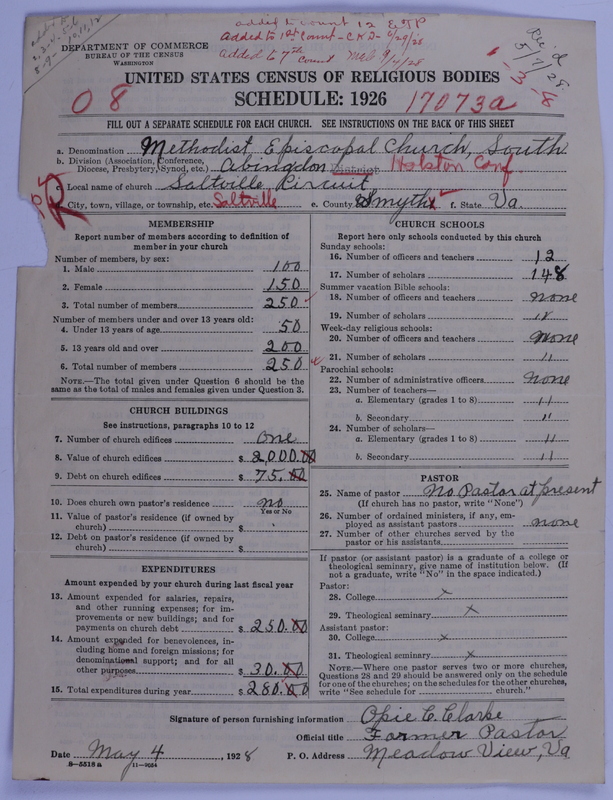 added to count 12 E.T.P
Added to 1st Count - C.K.D - 6/29/28
Added to 7th Count MEB 9/4/28
Rec'd
5/7/28
DEPARTMENT OF COMMERCE
BUREAU OF THE CENSUS
WASHINGTON
UNITED STATES CENSUS OF RELIGIOUS BODIES
SCHEDULE: 1926
08
17073a
FILL OUT A SEPARATE SCHEDULE FOR EACH CHURCH. SEE INSTRUCTIONS ON THE BACK OF THIS SHEET
a. Denomination Methodist Episcopal Church, South
b. Division (Association, Conference,
Diocese, Presbytery, Synod, etc.) Abingdon District Holston Conf.
c. Local name of church Saltville Circuit
d. City, town, village, or township, etc. Saltville e. County Smyth f. State Va.
R
MEMBERSHIP
Report number of members according to definition of
member in your church
Number of members, by sex:
1. Male 100
2. Female 150
3. Total number of members 250
Number of members under and over 13 years old:
4. Under 13 years of age 50
5. 13 years old and over 200
6. Total number of members 250
NOTE.—The total given under Question 6 should be the
same as the total of males and females given under Question 3.
CHURCH BUILDINGS
See instructions, paragraphs 10 to 12
7. Number of church edifices one
8. Value of church edifices $ 2,000.00
9. Debt on church edifices $ 75.00
10. Does church own pastor's residence no
Yes or No
11. Value of pastor's residence (if owned by
church) $
12. Debt on pastor's residence (if owned by
church) $
EXPENDITURES
Amount expended by your church during last fiscal year
13. Amount expended for salaries, repairs,
and other running expenses; for im-
provements or new buildings; and for
payments on church debt $ 250.00
14. Amount expended for benevolences, in-
cluding home and foreign missions; for
denominational support; and for all
other purposes $ 30.00
15. Total expenditures during year $ 280.00
CHURCH SCHOOLS
Report here only schools conducted by this church
Sunday schools:
16. Number of officers and teachers 12
17. Number of scholars 148
Summer vacation Bible schools:
18. Number of officers and teachers none
19. Number of scholars "
Week-day religious schools:
20. Number of officers and teachers none
21. Number of scholars "
Parochial schools:
22. Number of administrative officers none
23. Number of teachers—
a. Elementary (grades 1 to 8) "
b. Secondary "
24. Number of scholars—
a. Elementary (grades 1 to 8) "
b. Secondary "
PASTOR
25. Name of pastor No Pastor at present
(If church has no pastor, write "None")
26. Number of ordained ministers, if any, em-
ployed as assistant pastors none
27. Number of other churches served by the
pastor or his assistants
If pastor (or assistant pastor) is a graduate of a college or
theological seminary, give name of institution below. (If
not a graduate, write "No" in the space indicated.)
Pastor:
28. College x
29. Theological seminary x
Assistant pastor:
30. College x
31. Theological seminary x
NOTE.—Where one pastor serves two or more churches,
Questions 28 and 29 should be answered only on the schedule
for one of the churches; on the schedules for the other churches,
write "See schedule for church."
Signature of person furnishing information Opie C. Clarke
Official title Former Pastor
Date May 4, 1928 P. O. Address Meadow View, Va
8-5518a 11-9054